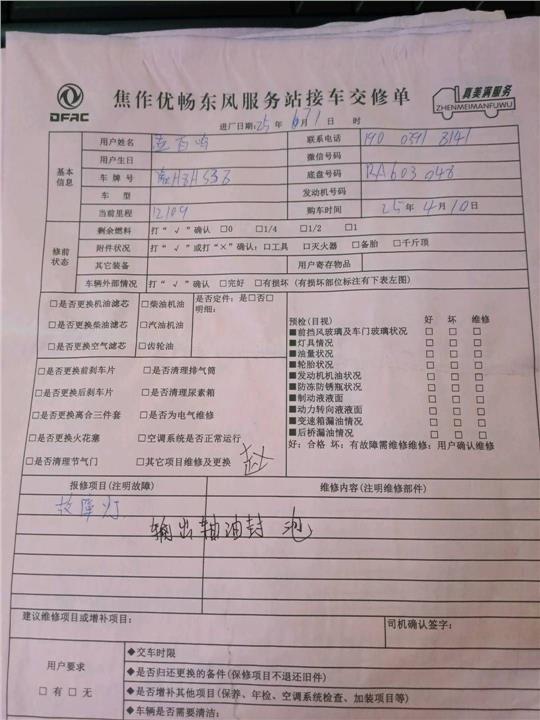 DFAC
焦作优畅东风服务站接车交修单
真美满服务
ZHENMEIMANFUWU
进厂日期:25年6月1日 时
基本信息
用户姓名 联系电话 190 0391 8141
用户生日 微信号码
车牌号 底盘号码 RA603048
车型 发动机号码
当前里程 12109 购车时间 25年4月10日
修前状态
剩余燃料 打“√”确认 □0 □1/4 □1/2 □1
附件状况 打“√”或打“×”确认：□工具 □灭火器 □备胎 □千斤顶
其它装备 用户寄存物品
车辆外部情况 打“√”确认 □完好 □有损坏（有损坏部位标注有下表左图）
□是否更换机油滤芯 □柴油机油 是否定件：是□否□
明细：
□是否更换柴油滤芯 □汽油机油
□是否更换空气滤芯 □齿轮油
□是否更换前刹车片 □是否清理排气筒
□是否更换后刹车片 □是否清理尿素箱
□是否更换离合三件套 □是否为电气维修
□是否更换火花塞 □空调系统是否正常运行
□是否清理节气门 □其它项目维修及更换
预检(目视) 好 坏 维修
■前挡风玻璃及车门玻璃状况 □ □ □
■灯具情况 □ □ □
■油量状况 □ □ □
■轮胎状况 □ □ □
■发动机机油状况 □ □ □
■防冻防锈瓶状况 □ □ □
■制动液液面 □ □ □
■动力转向液液面 □ □ □
■变速箱漏油情况 □ □ □
■后桥漏油情况 □ □ □
好：合格 坏：有故障需维修维修：用户确认维修
报修项目(注明故障) 维修内容(注明维修部件)
故障灯
输出轴油封
建议维修项目或增补项目： 司机确认签字：
用户要求
□有 □无
◆交车时限
◆是否归还更换的备件(保修项目不退还旧件)
◆是否增补其他项目(保养、年检、空调系统检查、加装项目等)
◆车辆是否需要清洁：